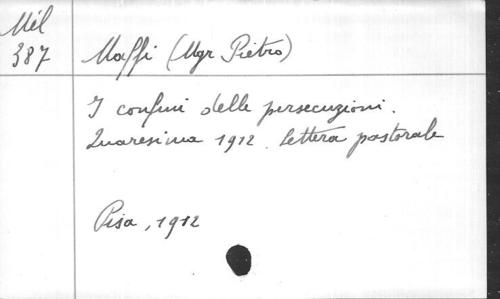 Mél
387
Maffi (Mgr Pietro)
I confini delle persecuzioni.
Quaresima 1912. Lettera pastorale
Pisa, 1912